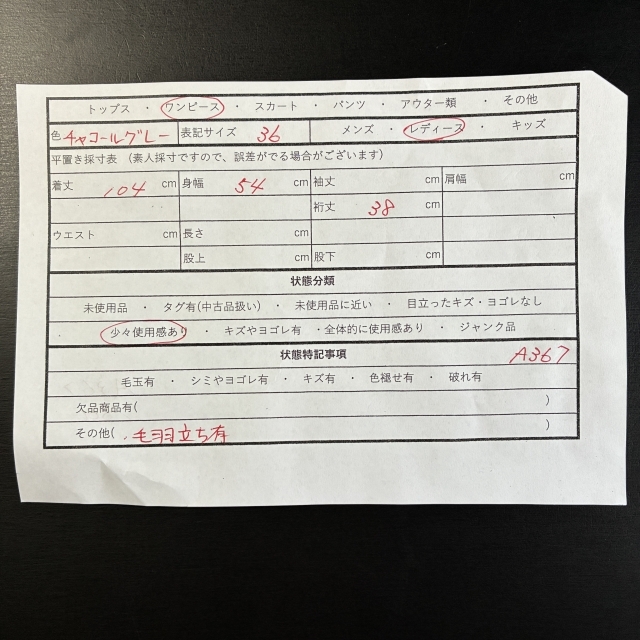 トップス ・ ワンピース ・ スカート ・ パンツ ・ アウター類 ・ その他
色 チャコールグレー 表記サイズ 36 メンズ ・ レディース ・ キッズ
平置き採寸表 (素人採寸ですので、誤差がでる場合がございます)
着丈 104 cm 身幅 54 cm 袖丈 cm 肩幅 cm
裄丈 38 cm
ウエスト cm 長さ cm
股上 cm 股下 cm
状態分類
未使用品 ・ タグ有(中古品扱い) ・ 未使用品に近い ・ 目立ったキズ・ヨゴレなし
少々使用感あり ・ キズやヨゴレ有 ・全体的に使用感あり ・ ジャンク品
状態特記事項 A367
毛玉有 ・ シミやヨゴレ有 ・ キズ有 ・ 色褪せ有 ・ 破れ有
欠品商品有( )
その他( 毛羽立ち有 )